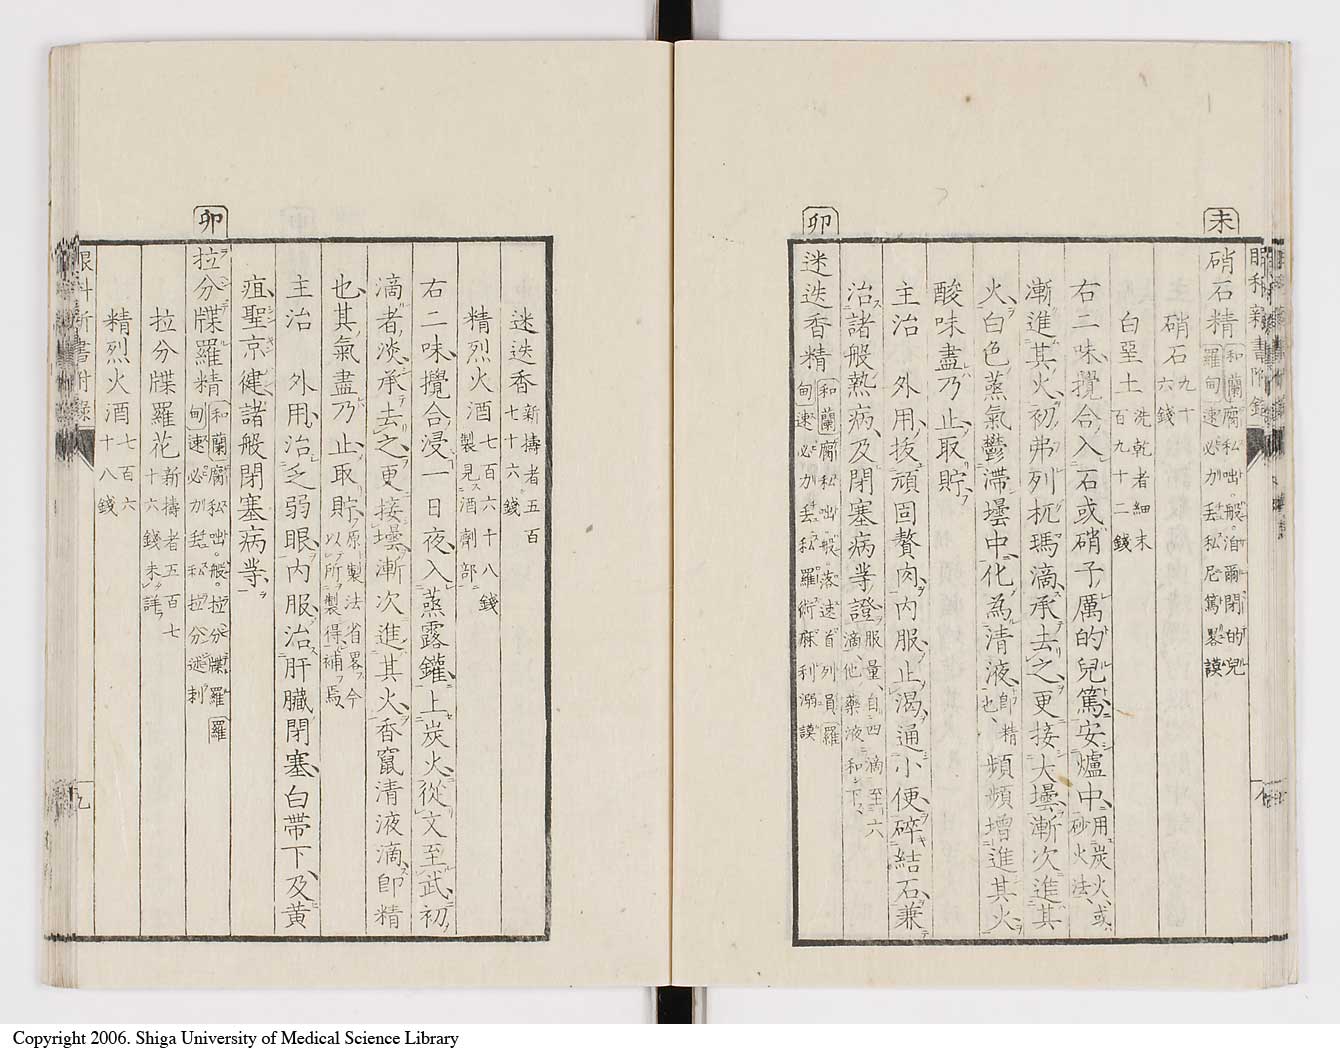 未
硝石精 和蘭 腐私咄。般。泊爾閉的兒
羅甸 速必力丟私尼篤畧謨
硝石 九十六錢
白堊土 洗乾者細末百九十二錢
右二味攪合入石或硝子厲的兒篤安爐中 用炭火或砂火法
漸進其火初弗列杬瑪滴承去之更接大壜漸次進其
火白色蒸氣鬱滯壜中化為清液 即精也 頻頻增進其火
酸味盡乃止取貯
主治 外用抜頑固贅肉内服止渴通小便碎結石兼
治諸般熱病及閉塞病等證 服量自四滴至六滴他藥液和下
卯
迷迭香精 和蘭 腐私咄。般。落速首列員
羅甸 速必力丟私羅術麻利溺謨
眼科新書附錄
迷迭香 新擣者五百七十六錢
精烈火酒 七百六十八錢製見酒劑部
右二味攪合浸一日夜入蒸露鑵上炭火從文至武初
滴者淡承去之更接壜漸次進其火香竄清液滴即精
也其氣盡乃止取貯 原製法省畧今以所製得補焉
主治 外用治乏弱眼内服治肝臟閉塞白帶下及黃
疽聖京徤諸般閉塞病等
卯
拉分牒羅精 和蘭 腐私咄。般。拉分牒羅
羅甸 速必力丟私拉分逑刺
拉分牒羅花 新擣者五百七十六錢未詳
精烈火酒 七百六十八錢
眼科新書附錄
九
Copyright 2006. Shiga University of Medical Science Library